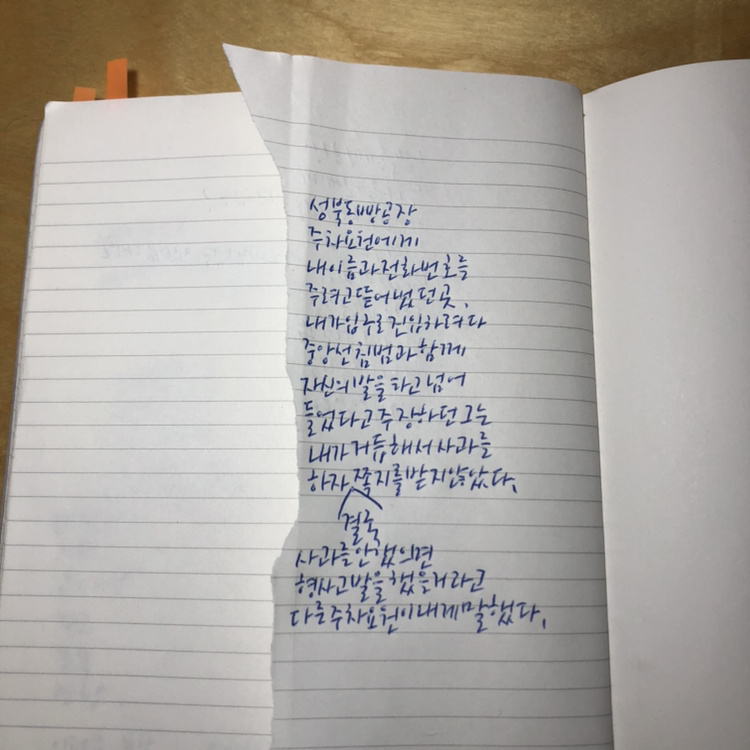 성북동빵공장
주차요원에게
내이름과전화번호를
주려고뜯어냈던곳.
내가입구로진입하려다
중앙선침범과함께
자신의발을타고넘어
들었다고주장하던그는
내가거듭해서사과를
하자쪽지를받지않았다.
결국
사과를안했으면
형사고발을했을거라고
다른주차요원이내게말했다.